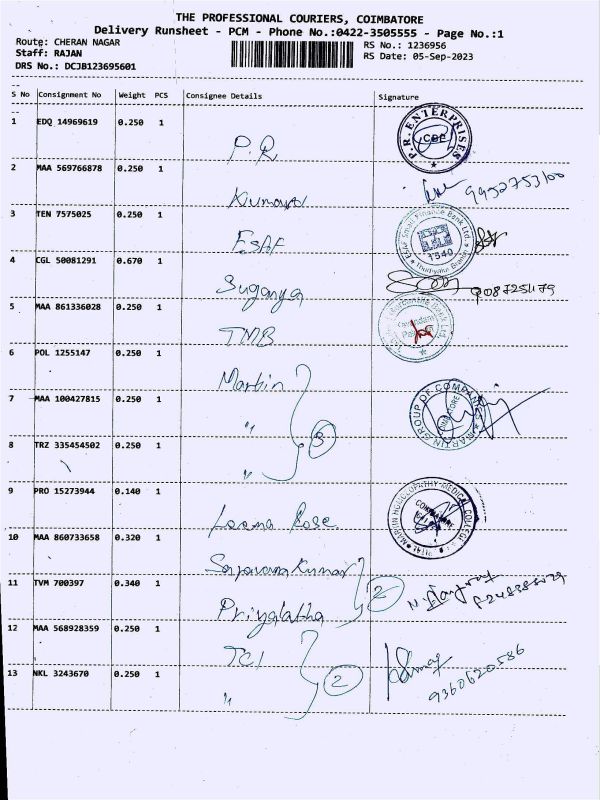 THE PROFESSIONAL COURIERS, COIMBATORE
Delivery Runsheet - PCM - Phone No.:0422-3505555 - Page No.:1
Route: CHERAN NAGAR RS No.: 1236956
Staff: RAJAN RS Date: 05-Sep-2023
DRS No.: DCJB123695601
S No Consignment No Weight PCS Consignee Details Signature
1 EDQ 14969619 0.250 1 P.R P.R. ENTERPRISES CBE
2 MAA 569766878 0.250 1
3 TEN 7575025 0.250 1 ESAF ESAF Small Finance Bank Ltd. 1540
4 CGL 50081291 0.670 1 Suganya
5 MAA 861336028 0.250 1 TMB
6 POL 1255147 0.250 1 Martin
7 MAA 100427815 0.250 1 " 3 MARTIN GROUP OF COMPANIES COIMBATORE
8 TRZ 335454502 0.250 1 "
9 PRO 15273944 0.140 1 Leema Rose MARTIN HOMOEOPATHY MEDICAL COLLEGE
10 MAA 860733658 0.320 1 Saravana Kumar
11 TVM 700397 0.340 1 Priyalatha 2
12 MAA 568928359 0.250 1 TCI
13 NKL 3243670 0.250 1 " 2 9360620586